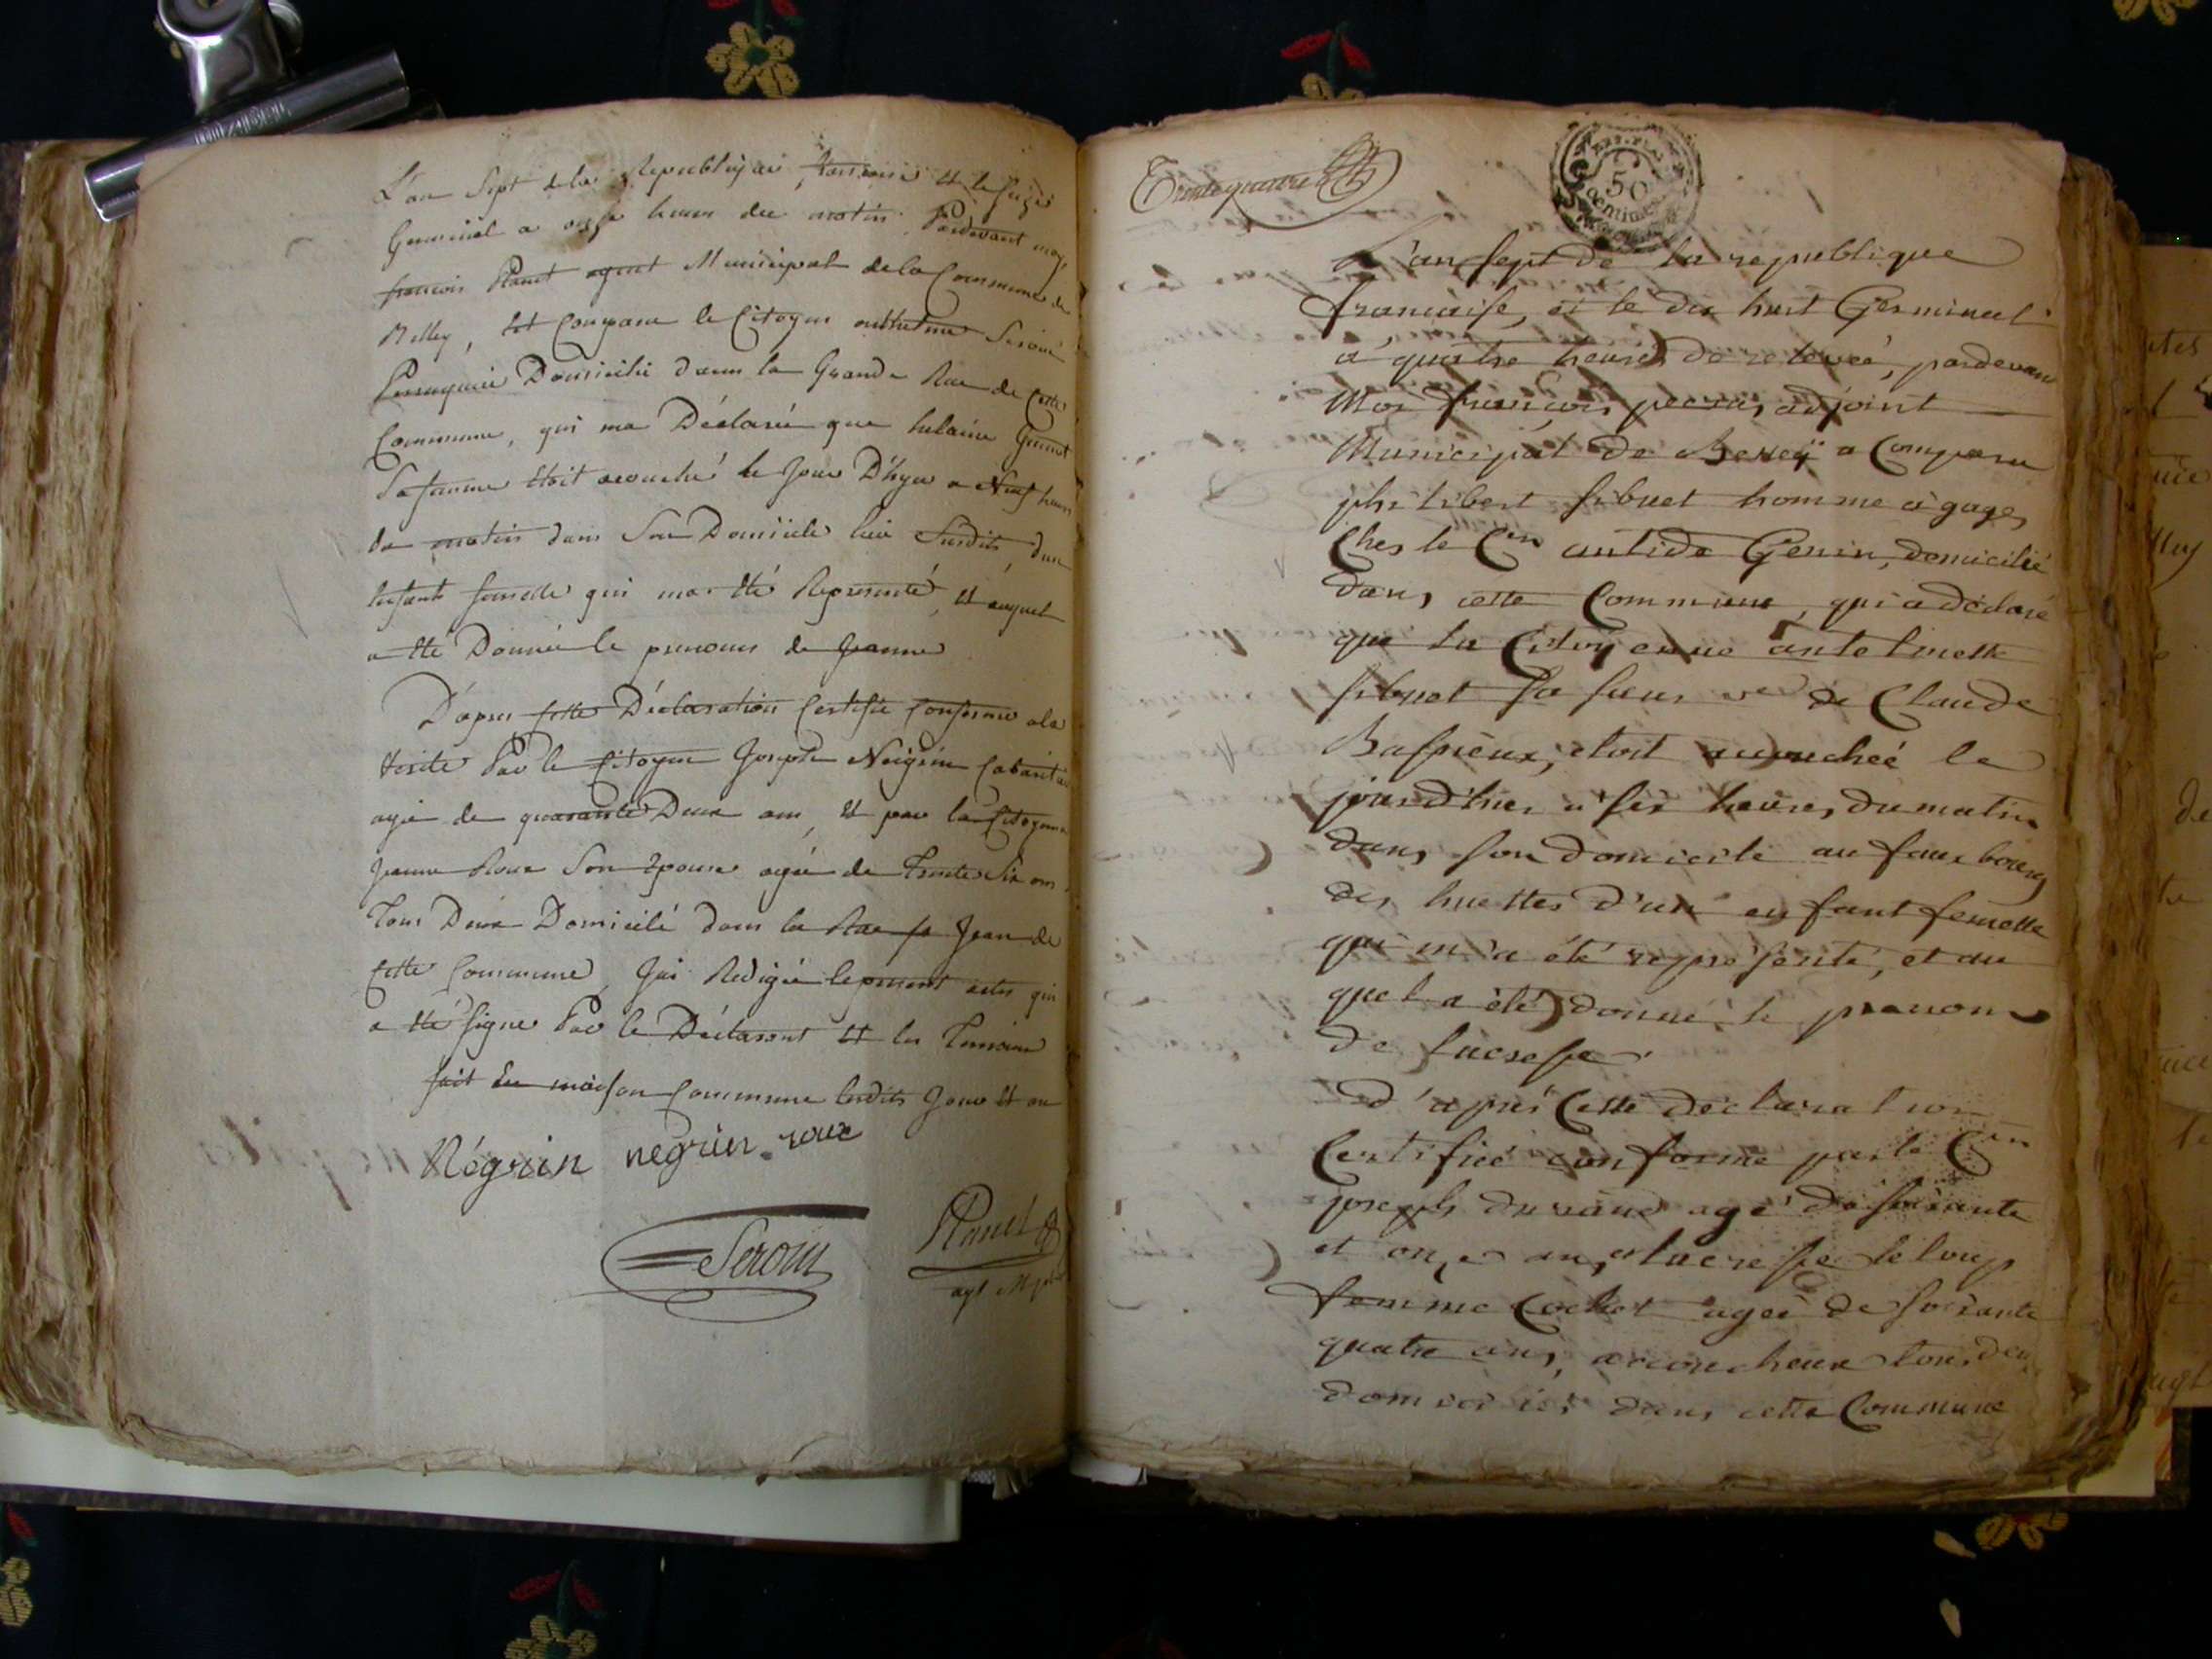 L'an Sept de la Republique francoise et le seize
Germinal a onze heures du matin Pardevant moy
francois Planet agent Municipal de la Commune de
Belley, Est Comparu le Citoyen anthelme Serom
Perruquier Domicilié dans la Grande Rue de Cette
Commune, qui ma Déclaré que helaine
Sa femme étoit acouché le Jour D'hyer a Neuf heures
du matin dans Son Domicile lieu Susdits, d'un
enfant femelle qui ma été Représenté, et auquel
a été Donné le prenoms de Jeanne
D'apres Cette Déclaration Certifié Conforme a la
Verité Par le Citoyen Joseph Negrin Cabartier
agé de quarante Deux ans, et par la Citoyenne
Jeanne Roux Son Epouse agée de Trente Six ans
Tous Deux Domicilié dans la Rue St Jean de
Cette Commune, J'ai Redigée le present acte qui
a été signe Par le Déclarant et les Temoins
fait En maison Commune lesdits Jour et an
Négrin negrin roux
Serom Planet
agt Mpal
Trente quatre
50
Centimes
L'an sept de la republique
francaise, et le dix huit Germinal
a quatre heures de relevée, pardevant
Moi francois adjoint
Municipal de Belley a Comparu
philibert sibuet homme à gages
Chez le Cen antide Genin, domicilié
dans cette Commune, qui a déclaré
que la Citoyenne antelmette
sibuet sa soeur ve de Claude
étoit accouchée le
jour d'hier a six heures du matin
dans son domicile au faux bourg
des huettes d'un enfant femelle
qui m'a été représenté, et au
quel a été donné le prenom
de lucresse.
d'après Cette déclaration
Certifiée conforme par le Cen
joseph durand agé de soixante
et onze ans, et lucresse leloup
femme Cochet agée de soixante
quatre ans, accoucheuse tous deux
domiciliés dans cette Commune